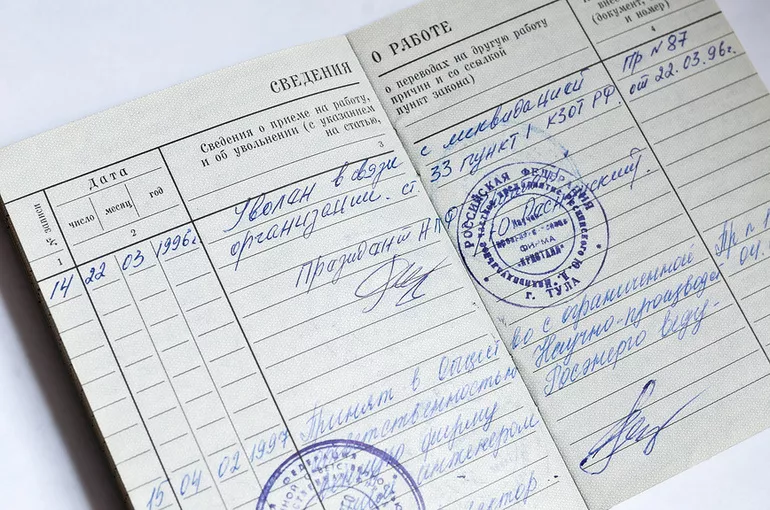 СВЕДЕНИЯ О РАБОТЕ
Дата
Сведения о приеме на работу, о переводах на другую работу
и об увольнении (с указанием причин и со ссылкой
на статью, пункт закона)
(документ,
и номер)
№ записи
число месяц год
1 2 3 4
14 22 03 1996г. Уволан в связи с ликвидацией Пр N 87
организации. ст. 33 пункт 1 КЗОТ РФ. от 22.03.96г.
Президант НПФ
РОССИЙСКАЯ ФЕДЕРАЦИЯ
ФИРМА
"КРИСТАЛЛ"
г. ТУЛА
15 04 02 1997 Принят в Общество с ограниченной Пр п 1
ответственностью Научно-производст
фирму Росэнерго веду-
инженером